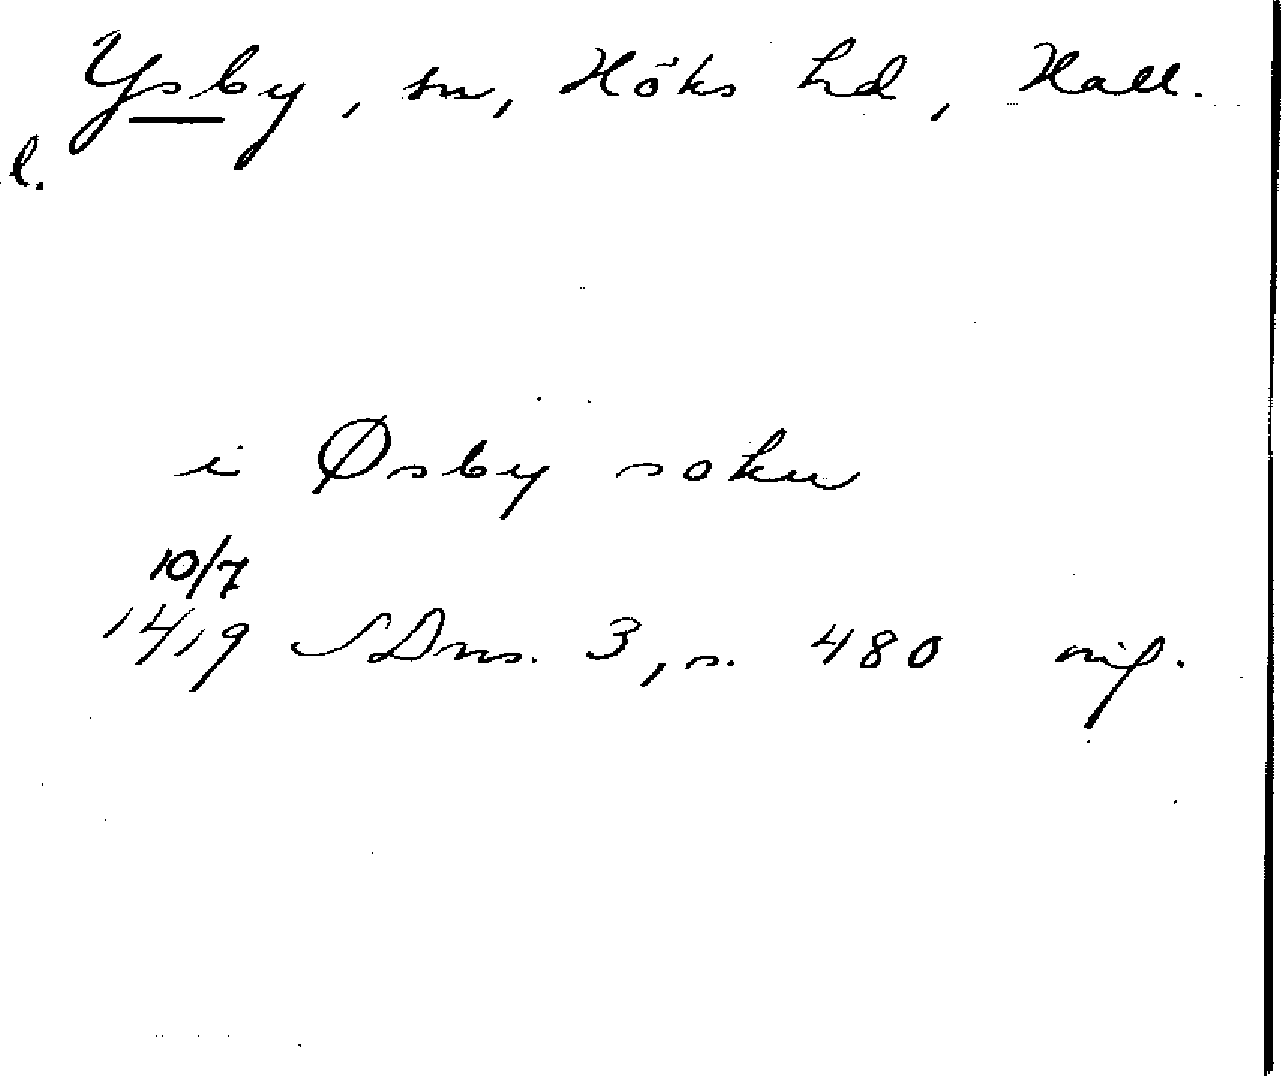 Ysby, sn, Höks hd, Hall.
l.
i Øsby sokn
10/7
1419 SDns. 3, s. 480 nif.